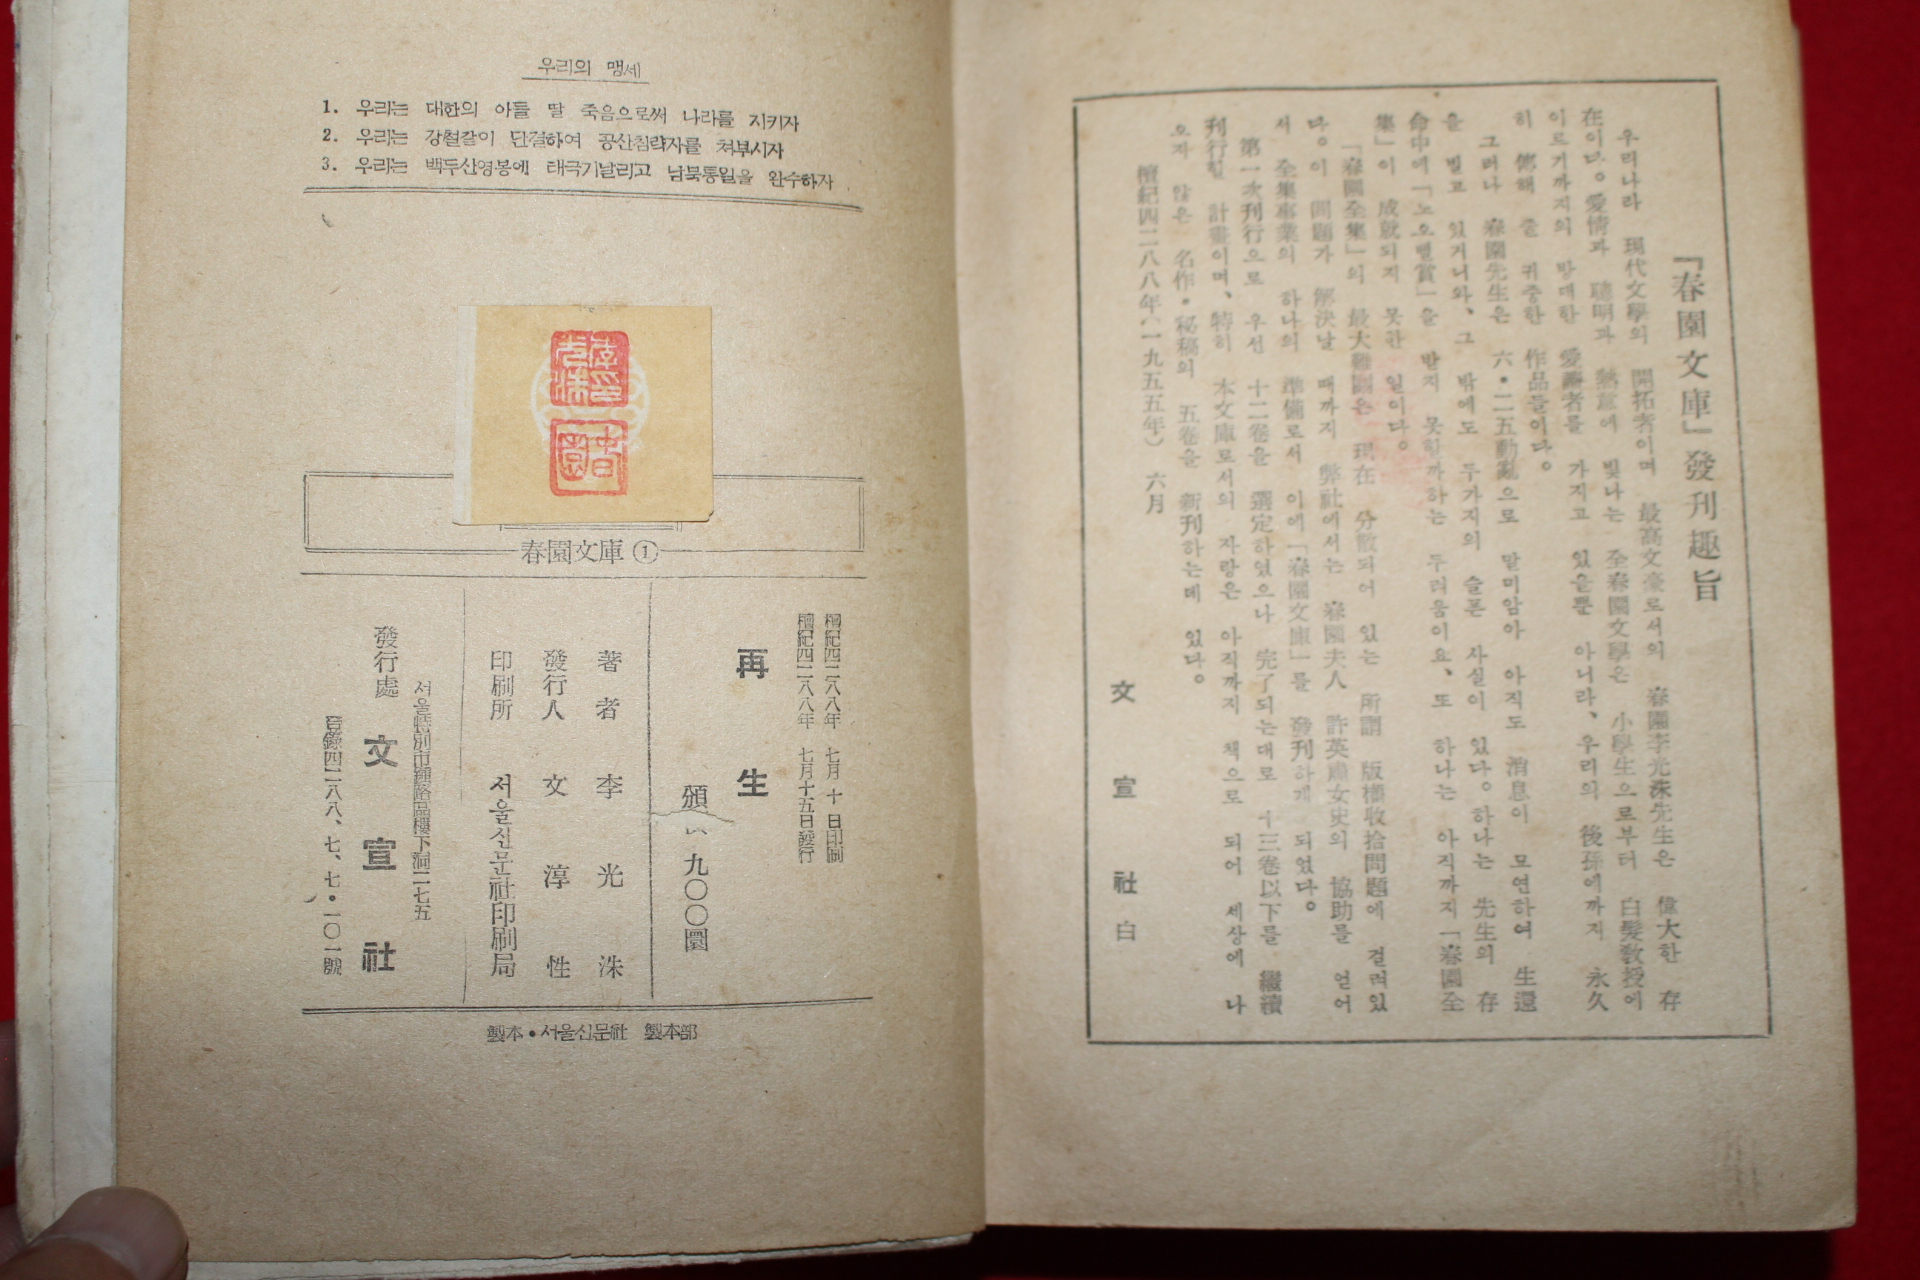 우리의 맹세
1. 우리는 대한의 아들 딸 죽음으로써 나라를 지키자
2. 우리는 강철같이 단결하여 공산침략자를 쳐부시자
3. 우리는 백두산영봉에 태극기날리고 남북통일을 완수하자
春園文庫 ①
檀紀四二八八年 七月 十 日印刷
檀紀四二八八年 七月十五日發行
再生
頒 九〇〇圜
著者 李光洙
發行人 文淳性
印刷所 서울신문社印刷局
서울特別市鍾路區樓下洞二七五
發行處 文宣社
登錄四二八八、七、七・一〇一號
製本・서울신문社 製本部
『春園文庫』發刊趣旨
우리나라 現代文學의 開拓者이며 最高文豪로서의 春園李光洙先生은 偉大한 存
在이다。愛情과 聰明과 熱意에 빛나는 全春園文學은 小學生으로부터 白髮敎授에
이르기까지의 방대한 愛讀者를 가지고 있을뿐 아니라、우리의 後孫에까지 永久
히 傳해 줄 귀중한 作品들이다。
그러나 春園先生은 六・二五動亂으로 말미암아 아직도 消息이 묘연하여 生還
을 빌고 있거니와、그 밖에도 두가지의 슬픈 사실이 있다。하나는 先生의 存
命中에「노오벨賞」을 받지 못할까하는 두려움이요、또 하나는 아직까지「春園全
集」이 成就되지 못한 일이다。
「春園全集」의 最大難關은 現在 分散되어 있는 所謂 版權收拾問題에 걸려있
다。이 問題가 解決날 때까지 弊社에서는 春園夫人 許英肅女史의 協助를 얻어
서 全集事業의 하나의 準備로서 이에「春園文庫」를 發刊하게 되었다。
第一次刊行으로 우선 十二卷을 選定하였으나 完了되는대로 十三卷以下를 繼續
刊行할 計畫이며、特히 本文庫로서의 자랑은 아직까지 책으로 되어 세상에 나
오지 않은 名作・秘稿의 五卷을 新刊하는데 있다。
檀紀四二八八年(一九五五年) 六月
文宣社 白